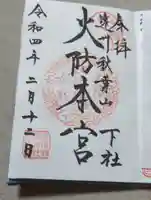 奉拝
遠州秋葉山
下社
火防本宮
令和四年二月十二日